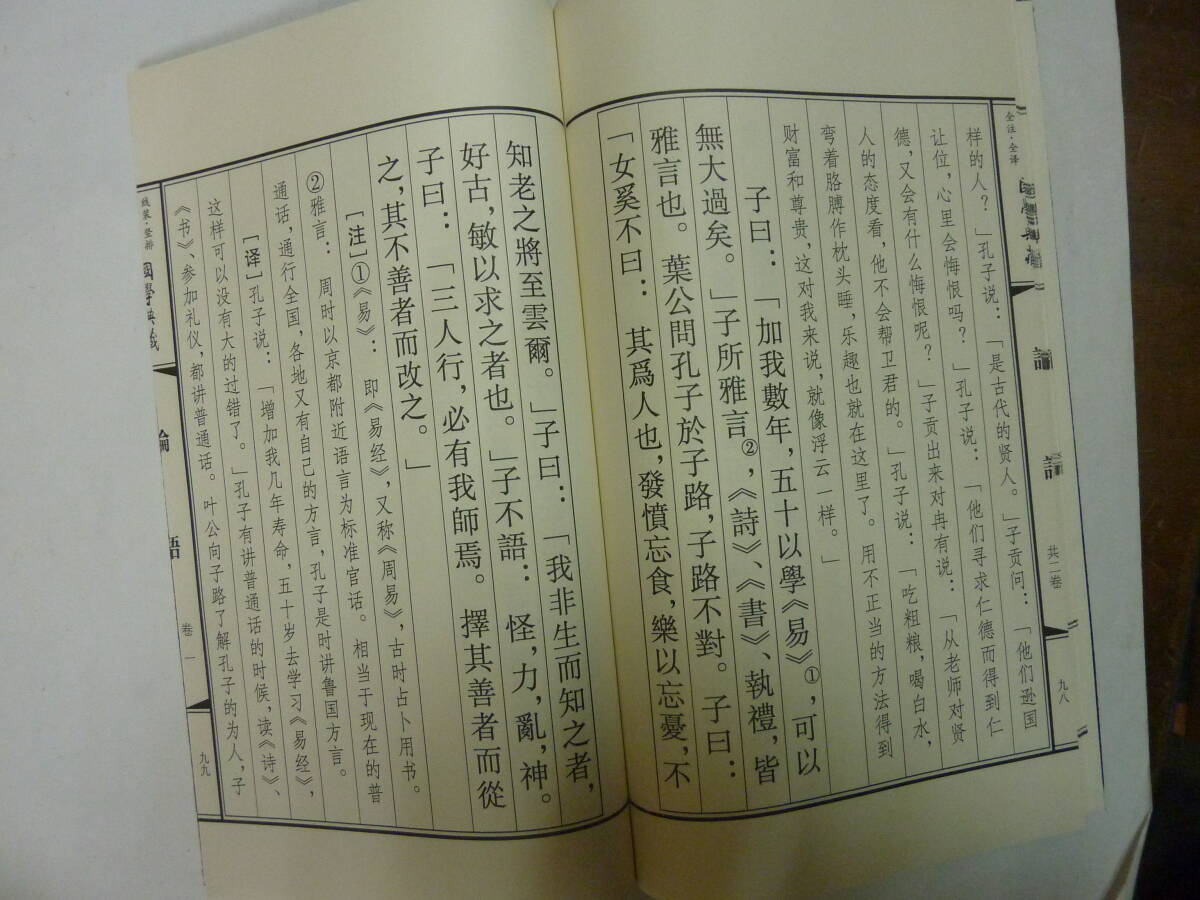 全注·全译
論語
共二卷
九八
样的人？」孔子说：「是古代的贤人。」子贡问：「他们逊国
让位，心里会悔恨吗？」孔子说：「他们寻求仁德而得到仁
德，又会有什么悔恨呢？」子贡出来对冉有说：「从老师对贤
人的态度看，他不会帮卫君的。」孔子说：「吃粗粮，喝白水，
弯着胳膊作枕头睡，乐趣也就在这里了。用不正当的方法得到
财富和尊贵，这对我来说，就像浮云一样。」
子曰：「加我數年，五十以學《易》①，可以
無大過矣。」子所雅言②，《詩》、《書》、執禮，皆
雅言也。葉公問孔子於子路，子路不對。子曰：
「女奚不曰：其爲人也，發憤忘食，樂以忘憂，不
知老之將至雲爾。」子曰：「我非生而知之者，
好古，敏以求之者也。」子不語：怪，力，亂，神。
子曰：「三人行，必有我師焉。擇其善者而從
之，其不善者而改之。」
［注］①《易》：即《易经》，又称《周易》，古时占卜用书。
②雅言：周时以京都附近语言为标准官话。相当于现在的普
通话，通行全国，各地又有自己的方言，孔子是时讲鲁国方言。
［译］孔子说：「增加我几年寿命，五十岁去学习《易经》，
这样可以没有大的过错了。」孔子有讲普通话的时候，读《诗》、
《书》、参加礼仪，都讲普通话。叶公向子路了解孔子的为人，子
线装·竖排
國學典藏
論語
卷一
九九